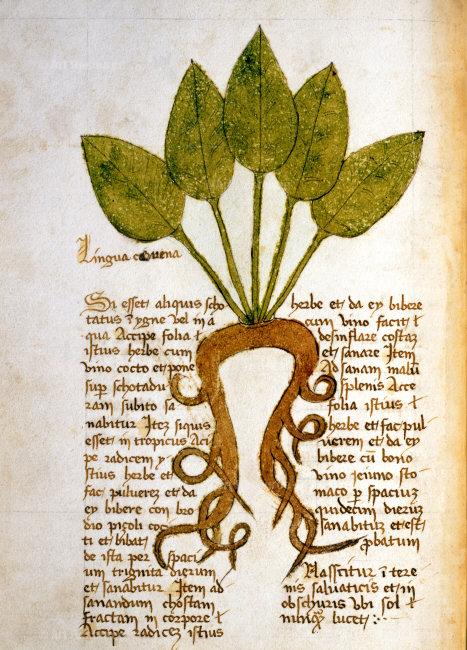 Lingua cavena
Si esset aliquis scho
tatus i ygne vel in a
qua Accipe folia t
istius herbe cum
vino cocto et pone
sup schotadu
ram subito sa
nabitur Itez siquis
esset in tropicus Aci
pe radicem y
stius herbe et
fac pulverez et da
ey bibere con bro
dio picoli coc
ti et bibat
de ista per spaci
um trignita dierum
et sanabitur Item ad
sanandum chostam
fractam in corpore t
Accipe radicez istius
herbe et da ey bibere
cum vino facit t
deinflare costaz
et sanare Item
Ad sanam malu
splenis Acce
folia istius t
herbe et fac pul
verem et da ey
bibere cu bono
vino jeiuno sto
maco p spacius
quidecim dieruz
sanabitur et est
pbatum
Nasscitur i tere
nis salvaticis et in
obschuris vbi sol t
nunq lucet